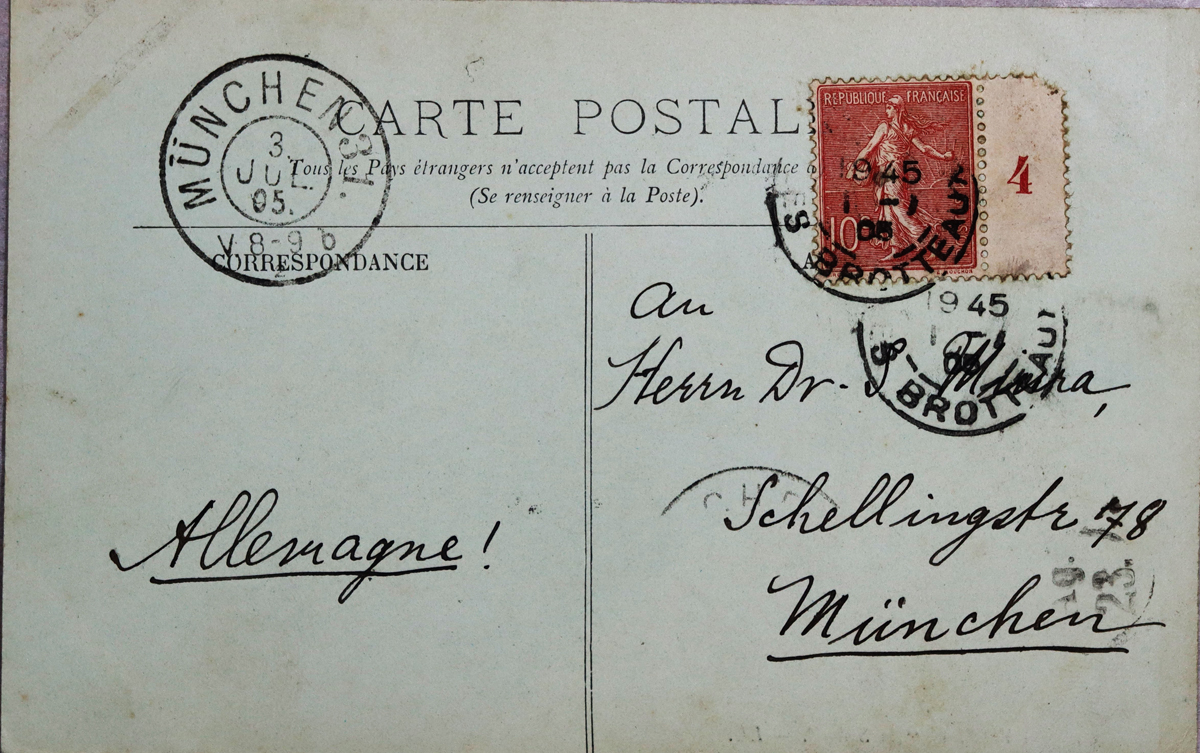 MÜNCHEN 31.
3
JUL.
05.
V. 8-9 b
CARTE POSTAL
Tous les Pays étrangers n'acceptent pas la Correspondance
(Se renseigner à la Poste).
CORRESPONDANCE
REPUBLIQUE FRANÇAISE
10
4
1945
05
BROTTEAUX
1945
BROTTEAUX
An
Herrn Dr.
Schellingstr 78
München
Allemagne!
23.